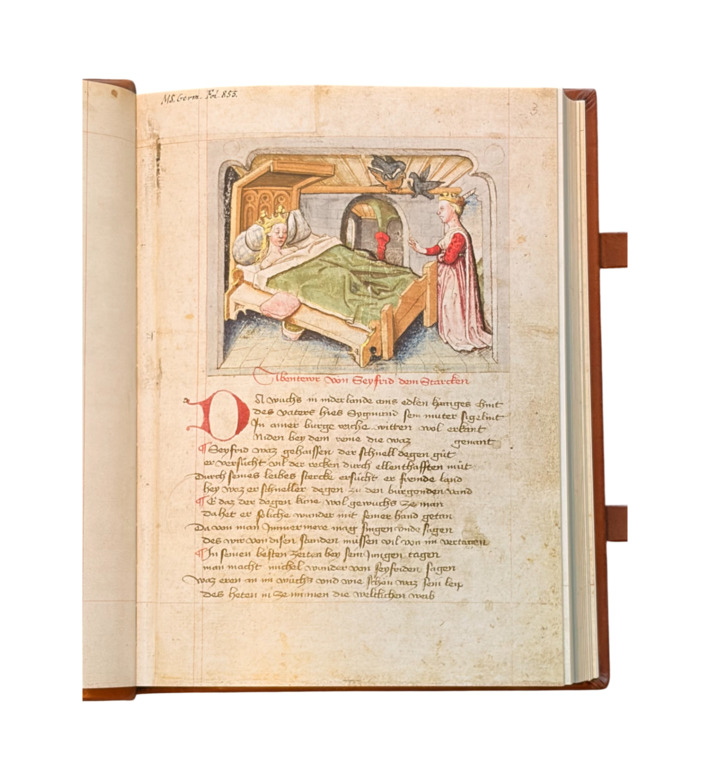 MS. Germ. Fol. 855.
3
Abentewr von Seyfrid dem Starcken
Da wuchs in niderlande ains edlen kuniges chint
des vaters hies Sygmund sein muter sigelint
In ainer burge reiche witten wol erkant
Niden bey dem reine die waz genant
Seyfrid waz gehaissen der schnell degen gut
er versucht vil der recken durch ellenthafften mut
Durch seines leibes stercke ersucht er fremde land
hey waz er schneller degen zu den burgonden vand
E daz der degen küne wol gewuchs ze man
Da het er soliche wunder mit seiner hand getan
Da von man immermere mag singen unde sagen
des wir von disen stunden müssen vil von im vertagen
In seinen besten zeiten bey sein jungen tagen
man macht michel wunder von seyfriden sagen
waz eren an im wuchs und wie schön waz sein leip
des heten in ze minnen die weltlichen weib